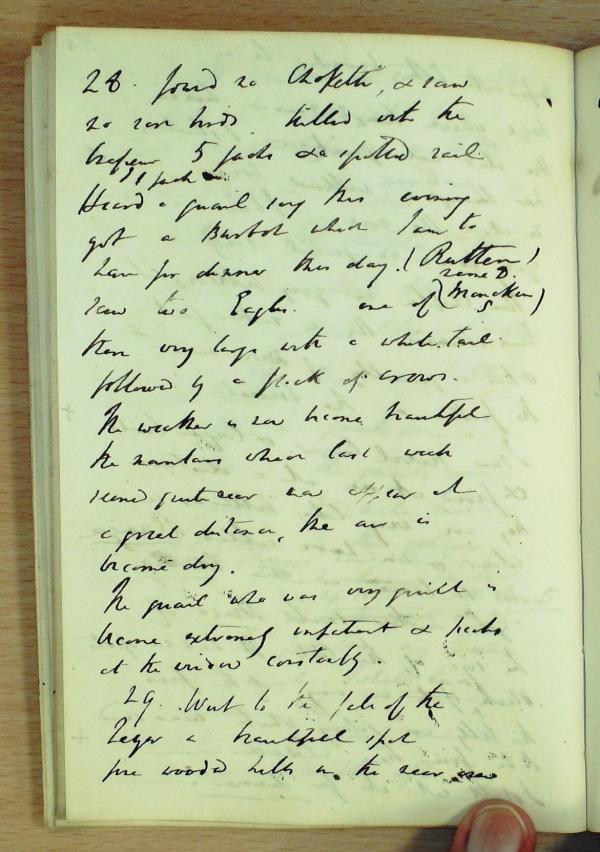 28. found no & saw
no rare birds killed with the
5 jacks & a spotted rail
11 jack
Heard a quail sing this evening
got a Burbot which I am to
have for dinner this day. (Rutten)
name D.
saw two Eagles. one of
them very large with a white tail
followed by a flock of crows.
The weather is now become beautiful
the mountains which last week
seemed quite near now appear at
a great distance, the air is
become dry.
The quail who was very quiet is
become extremely impatient & pecks
at the window constantly.
29. Went to the fall of the
a beautiful spot
fine wooded hills in the near